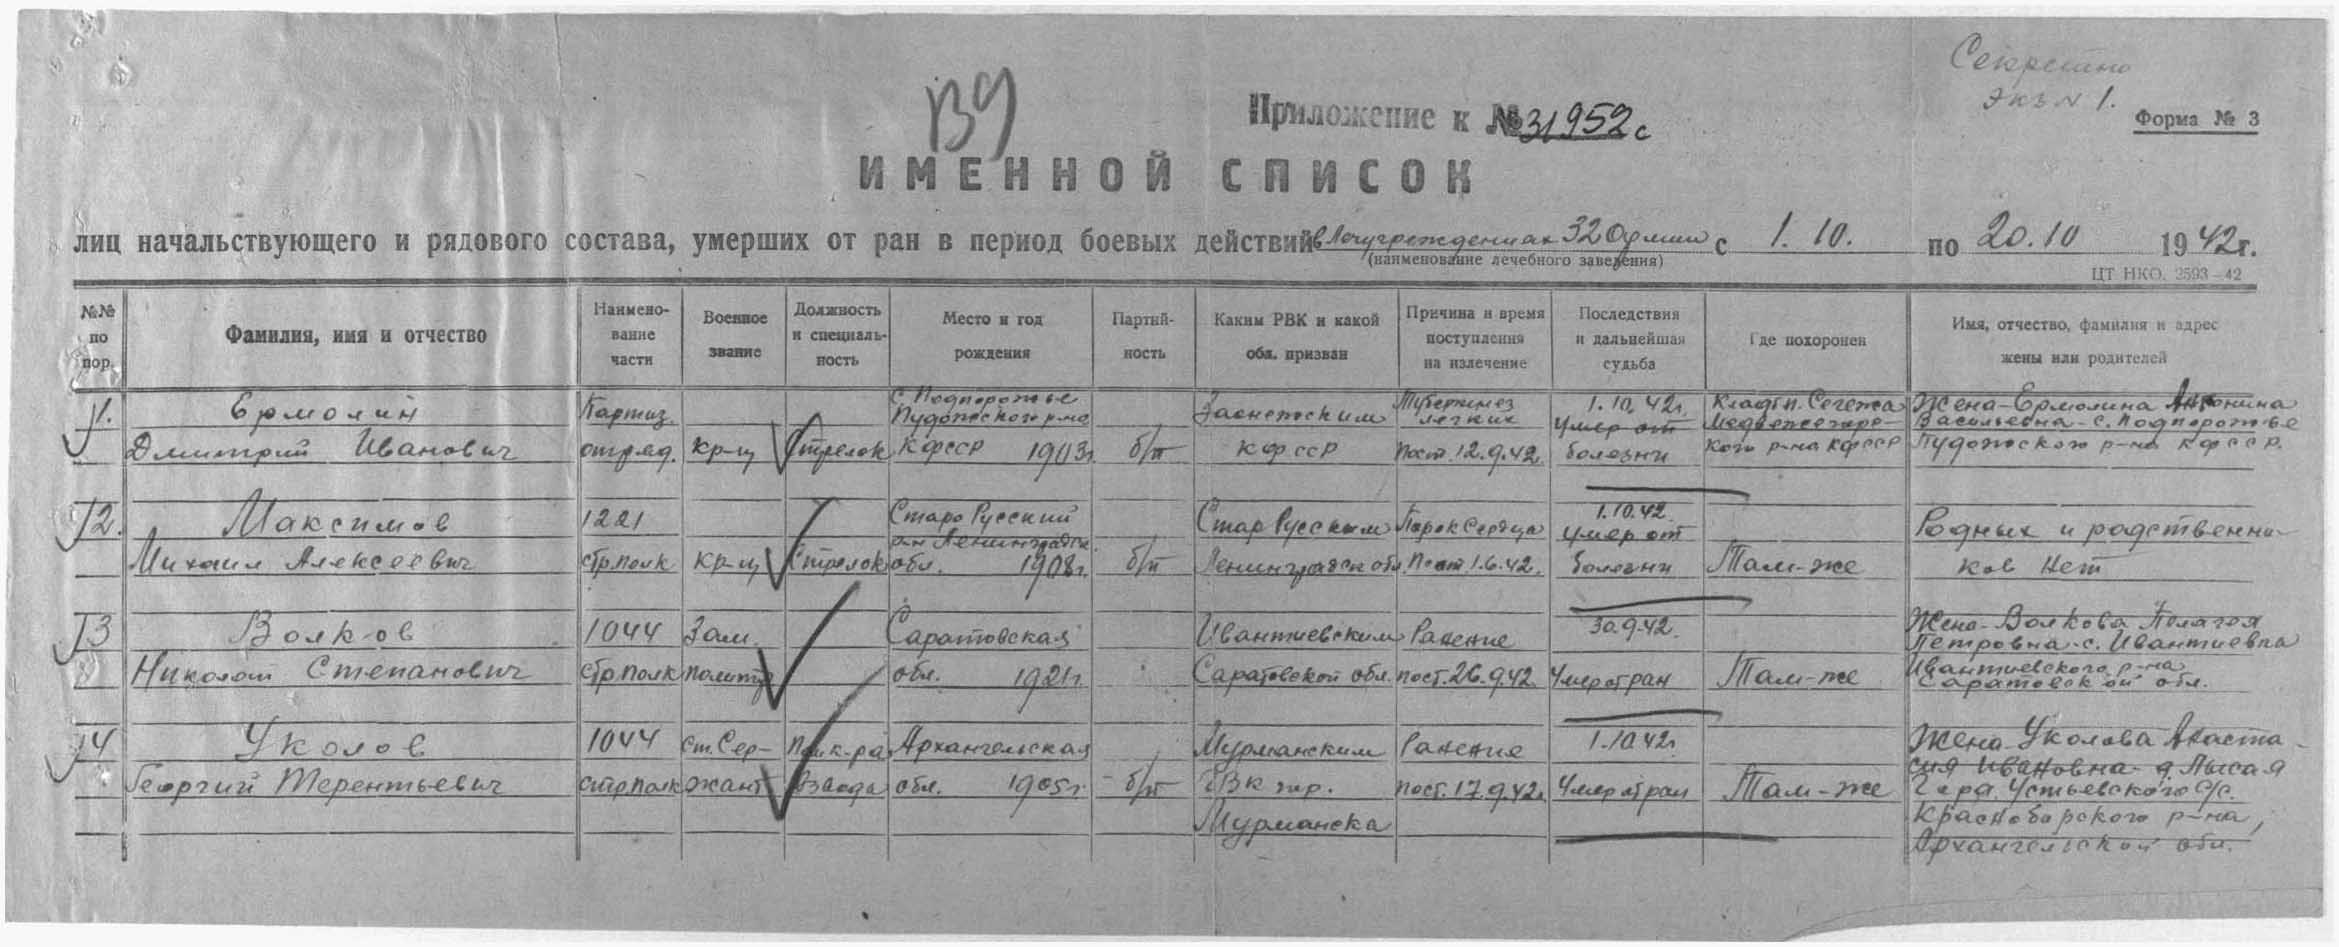 Секретно
Экз № 1.
139
Приложение к № 31952с
Форма № 3
ИМЕННОЙ СПИСОК
лиц начальствующего и рядового состава, умерших от ран в период боевых действий в Лечучреждениях 32 Армии с 1. 10. по 20. 10 1942г.
(наименование лечебного заведения)
ЦТ НКО. 2593—42
№№ по пор.
Фамилия, имя и отчество
Наимено-
вание
части
Военное
звание
Должность
и специаль-
ность
Место и год
рождения
Партий-
ность
Каким РВК и какой
обл. призван
Причина и время
поступления
на излечение
Последствия
и дальнейшая
судьба
Где похоронен
Имя, отчество, фамилия и адрес
жены или родителей
1.
Ермолин
Дмитрий Иванович
Партиз.
отряд.
кр-ц
Стрелок
с. Подпорожье
Пудожского р-на
КФССР 1903г.
б/п
Заонежским
КФССР
Туберкулез
легких
Пост. 12.9.42.
1.10.42г.
Умер от
болезни
Кладб. п. Сегежа
Медвежегорс-
кого р-на КФССР
Жена-Ермолина Антонина
Васильевна-с. Подпорожье
Пудожского р-на КФССР.
2.
Максимов
Михаил Алексеевич
1221
стр.полк
кр-ц
Стрелок
Старо Русский
р-н Ленинградск.
обл. 1908г.
б/п
Стар Русским
Ленинградск обл.
Порок Сердца
Пост. 1.6.42.
1.10.42.
Умер от
болезни
Там-же
Родных и родственни-
ков нет
3
Волков
Николай Степанович
1044
стр полк
Зам.
политр
Саратовская
обл. 1921г.
Ивантиевским
Саратовской обл.
Ранение
пост. 26.9.42.
30.9.42.
Умер от ран
Там-же
Жена-Волкова Пелагея
Петровна-с. Ивантиевка
Ивантиевского р-на
Саратовской обл.
4
Уколов
Георгий Терентьевич
1044
стр полк
Ст. Сер-
жант
Пом.к-ра
Взвода
Архангельская
обл. 1905г.
б/п
Мурманским
ГВК гор.
Мурманска
Ранение
пост. 17.9.42г.
1.10.42г.
Умер от ран
Там-же
Жена-Уколова Анаста-
сия Ивановна-д. Лысая
Гора. Устьевского С/с.
Красноборского р-на,
Архангельской обл.